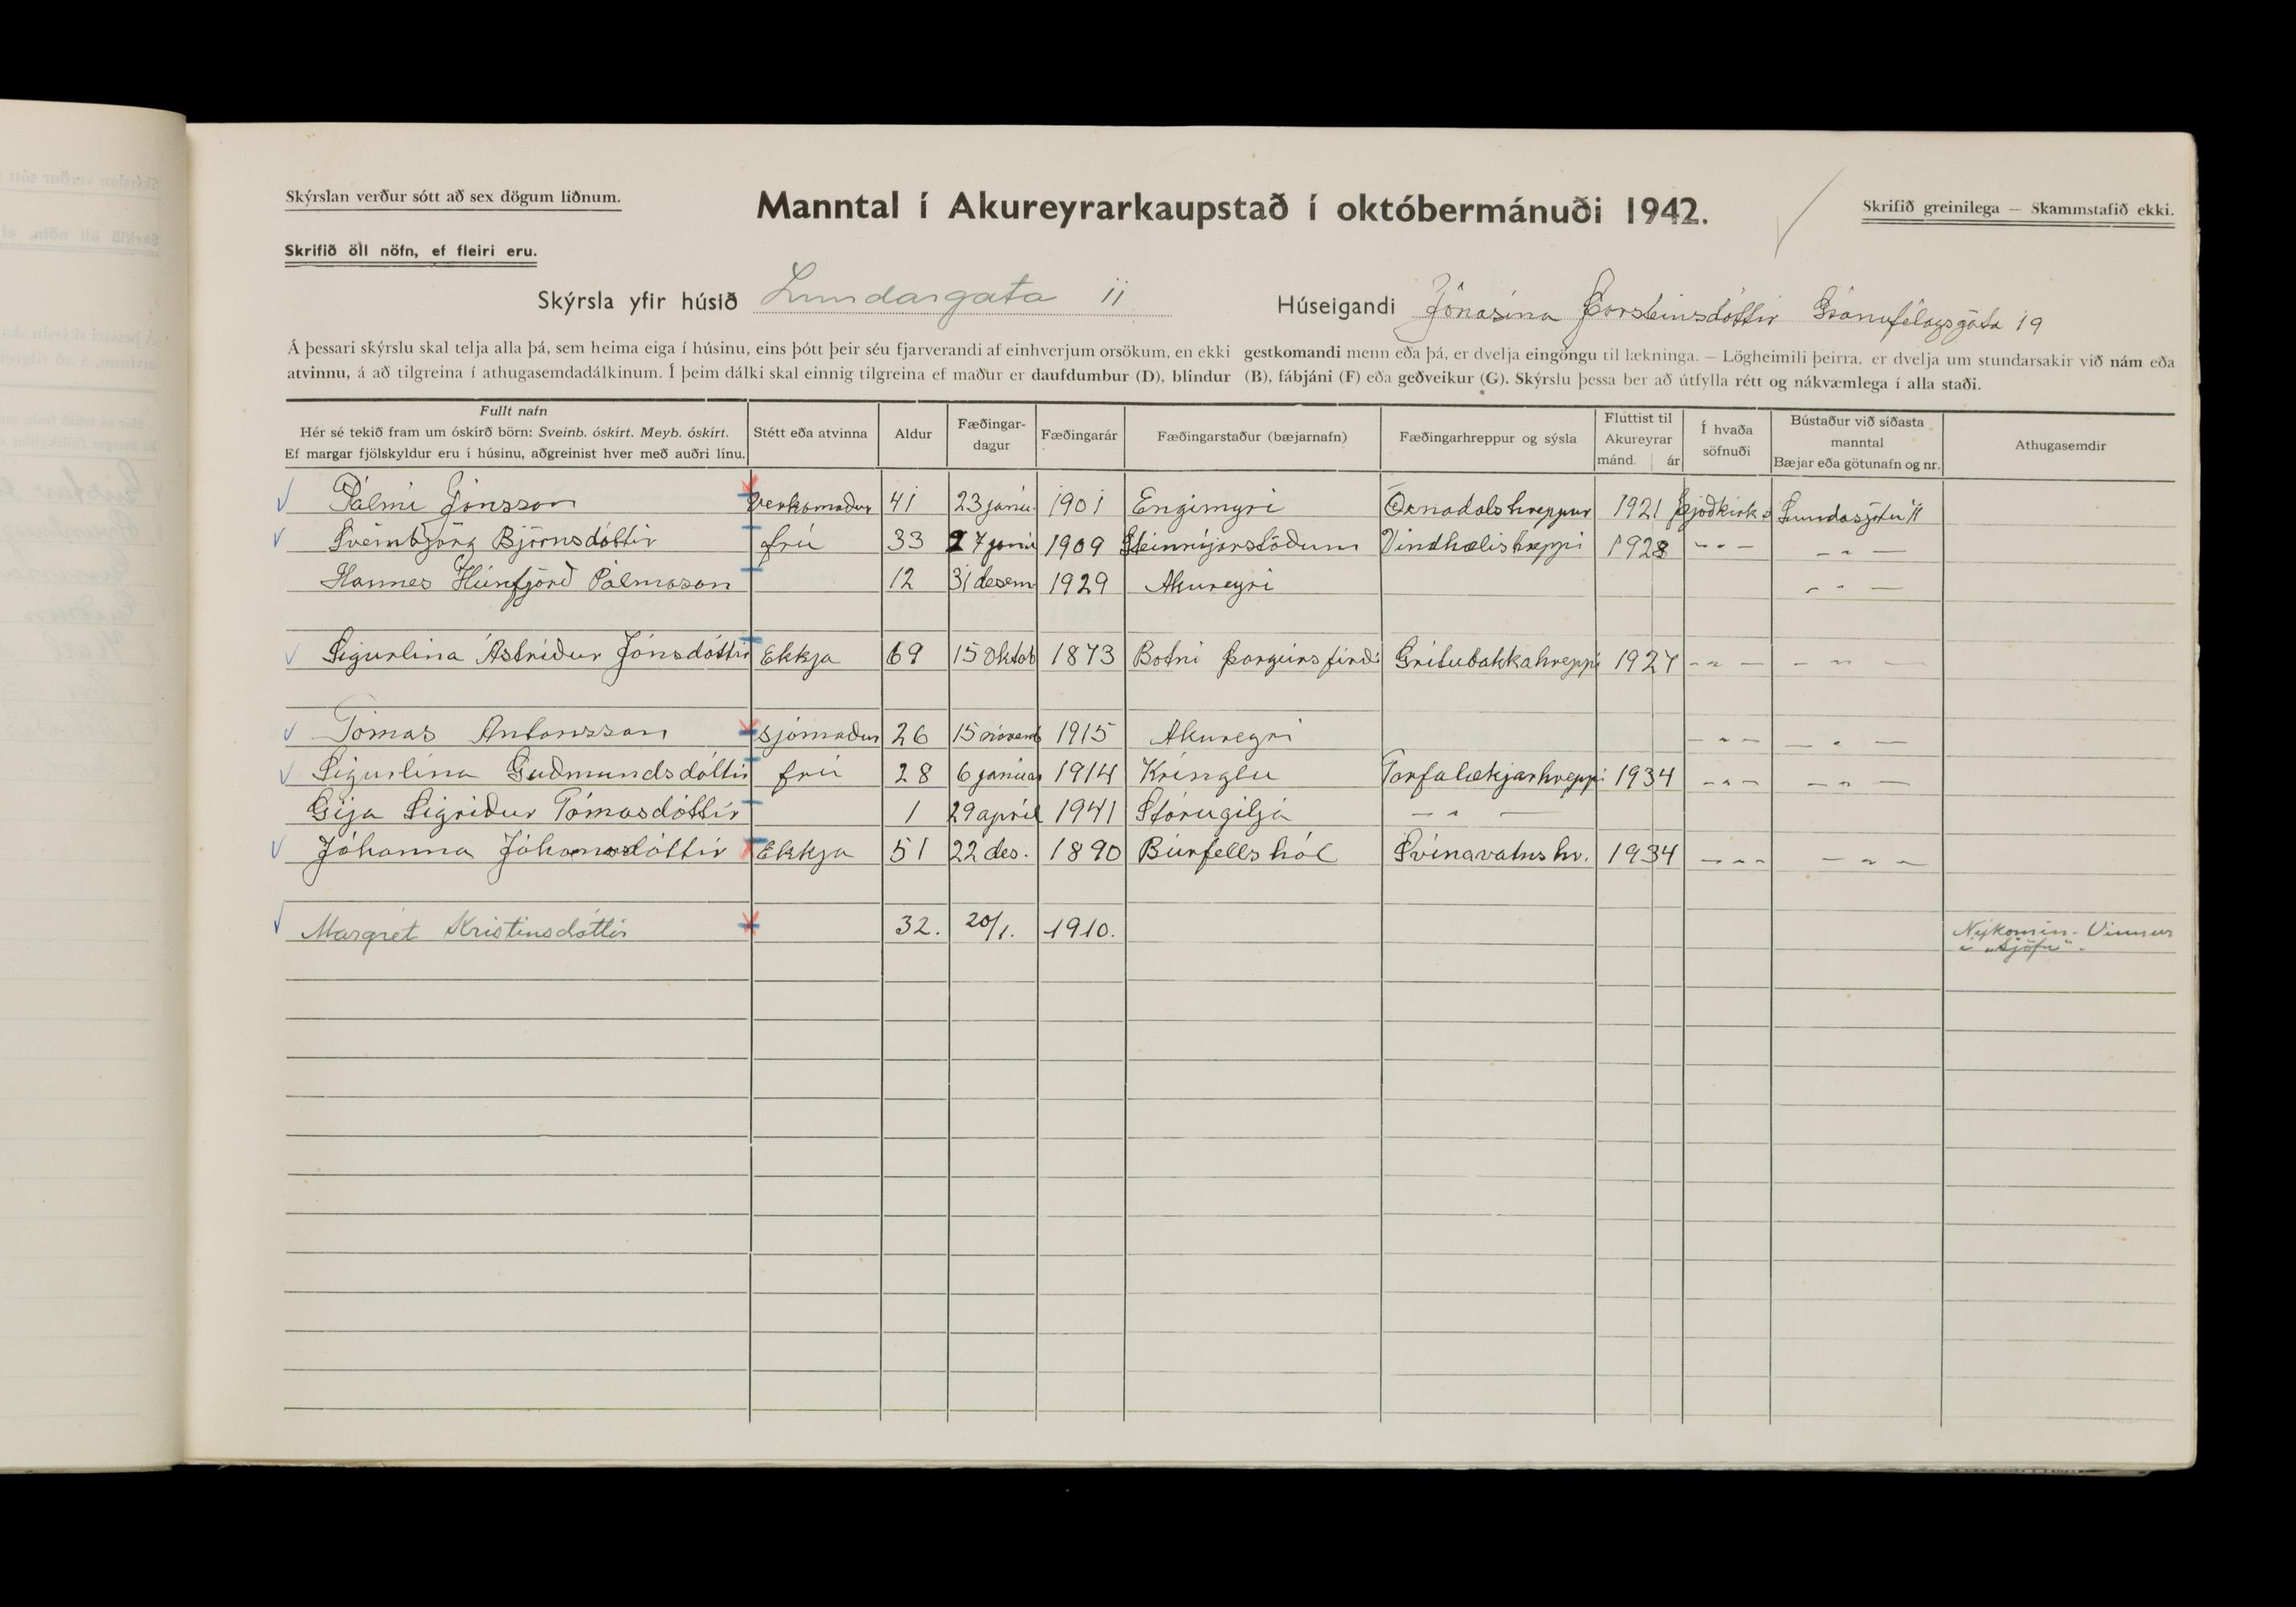 Skýrslan verður sótt að sex dögum liðnum.
Manntal í Akureyrarkaupstað í októbermánuði 1942.
Skrifið greinilega — Skammstafið ekki.
Skrifið öll nöfn, ef fleiri eru.
Skýrsla yfir húsið Lundargata 11
Húseigandi Jónasína Þorsteinsdóttir Gránufélagsgata 19
Á þessari skýrslu skal telja alla þá, sem heima eiga í húsinu, eins þótt þeir séu fjarverandi af einhverjum orsökum, en ekki gestkomandi menn eða þá, er dvelja eingöngu til lækninga. — Lögheimili þeirra, er dvelja um stundarsakir við nám eða
atvinnu, á að tilgreina í athugasemdadálkinum. Í þeim dálki skal einnig tilgreina ef maður er daufdumbur (D), blindur (B), fábjáni (F) eða geðveikur (G). Skýrslu þessa ber að útfylla rétt og nákvæmlega í alla staði.
Fullt nafn
Hér sé tekið fram um óskírð börn: Sveinb. óskírt. Meyb. óskírt.
Ef margar fjölskyldur eru í húsinu, aðgreinist hver með auðri línu.
Stétt eða atvinna
Aldur
Fæðingar-
dagur
Fæðingarár
Fæðingarstaður (bæjarnafn)
Fæðingarhreppur og sýsla
Fluttist til
Akureyrar
mánd. ár
Í hvaða
söfnuði
Bústaður við síðasta
manntal
Bæjar eða götunafn og nr.
Athugasemdir
Pálmi Jónsson verkamaður 41 23 janú. 1901 Engimýri Öxnadalshreppur 1921 Þjóðkirk. Lundargötu 11
Sveinbjörg Björnsdóttir frú 33 27 júní 1909 Steinnýjarstöðum Vindhælishreppi 1928 - " - - " -
Hannes Húnfjörð Pálmason 12 31 desem 1929 Akureyri - " -
Sigurlína Ástríður Jónsdóttir Ekkja 69 15 Oktob 1873 Botni Þorgeirsfirði Grítubakkahreppi 1927 - " - - " -
Tómas Antonsson sjómaður 26 15 nóvemb 1915 Akureyri - " - - " -
Sigurlína Guðmundsdóttir frú 28 6 janúar 1914 Kringlu Torfalækjarhreppi 1934 - " - - " -
Gígja Sigríður Tómasdóttir 1 29 apríl 1941 Stórugiljá - " -
Jóhanna Jóhannsdóttir Ekkja 51 22 des. 1890 Búrfellshól Svínavatnshr. 1934 - " - - " -
Margrét Kristinsdóttir 32. 20/1. 1910. Nýkomin. Vinnur
í „Sjöfn".